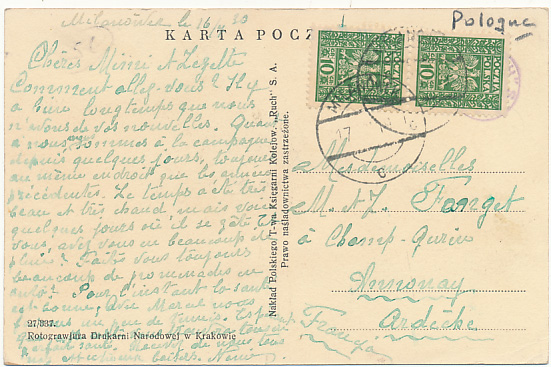 Milanówek le 16/ 30
Pologne
KARTA POCZ
Chères Mimi et Zézette
Comment allez-vous? Il y
a bien longtemps que nous
n'avons de vos nouvelles. Quant
à nous, nous sommes à la campagne
depuis quelques jours, toujours
au même endroit que les années
précédentes. Le temps a été très
beau et très chaud, mais voici
quelques jours où il se gâte. Et
vous, avez vous eu beaucoup de
pluie? Faites vous toujours
beaucoup de promenades en
auto? Pour l'instant la santé
est bonne, avec Marcel nous
un peu de tennis.
parfaite santé. Recevez de nous tous
baisers.
27/337.
Rotograwjura Drukarni Narodowej w Krakowie
Nakład Polskiego T-wa Księgarni Kolejow. „Ruch" S. A.
Prawo naśladownictwa zastrzeżone.
10
POCZTA
POLSKA
10
POCZTA
POLSKA
17
c
Mesdemoiselles
M. et Z. Farget
à Champ-Gurin
Annonay
Ardèche